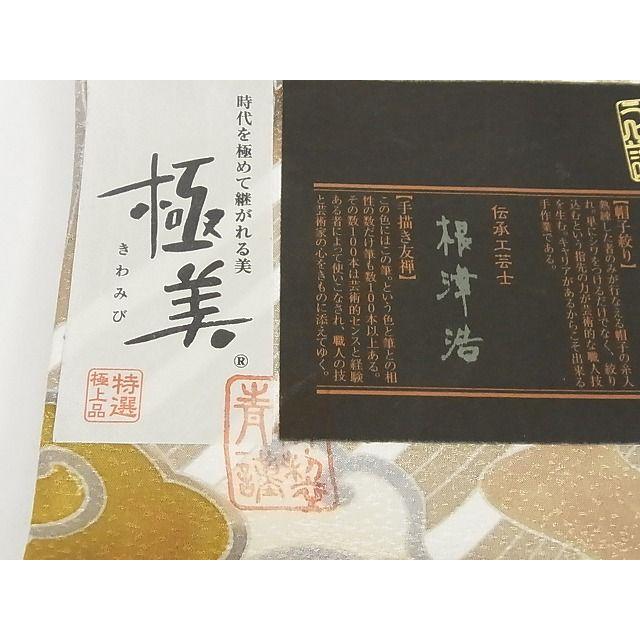 時代を極めて継がれる美
極美®
きわみび
特選
極上品
【帽子絞り】
熟練した者のみが行なえる帽子の糸入
れ。単にシワをつけるだけでなく、絞り
込むという指先の力が芸術的な職人技
を生む。キャリアがあるからこそ出来る
手作業である。
伝承工芸士
根津浩
【手描き友禅】
この色にはこの筆。という色と筆との相
性の数だけ筆も数100本以上ある。
その数100本は芸術的センスと経験
ある者によって使いこなされ、職人の技
と芸術家の心をきものに添えてゆく。